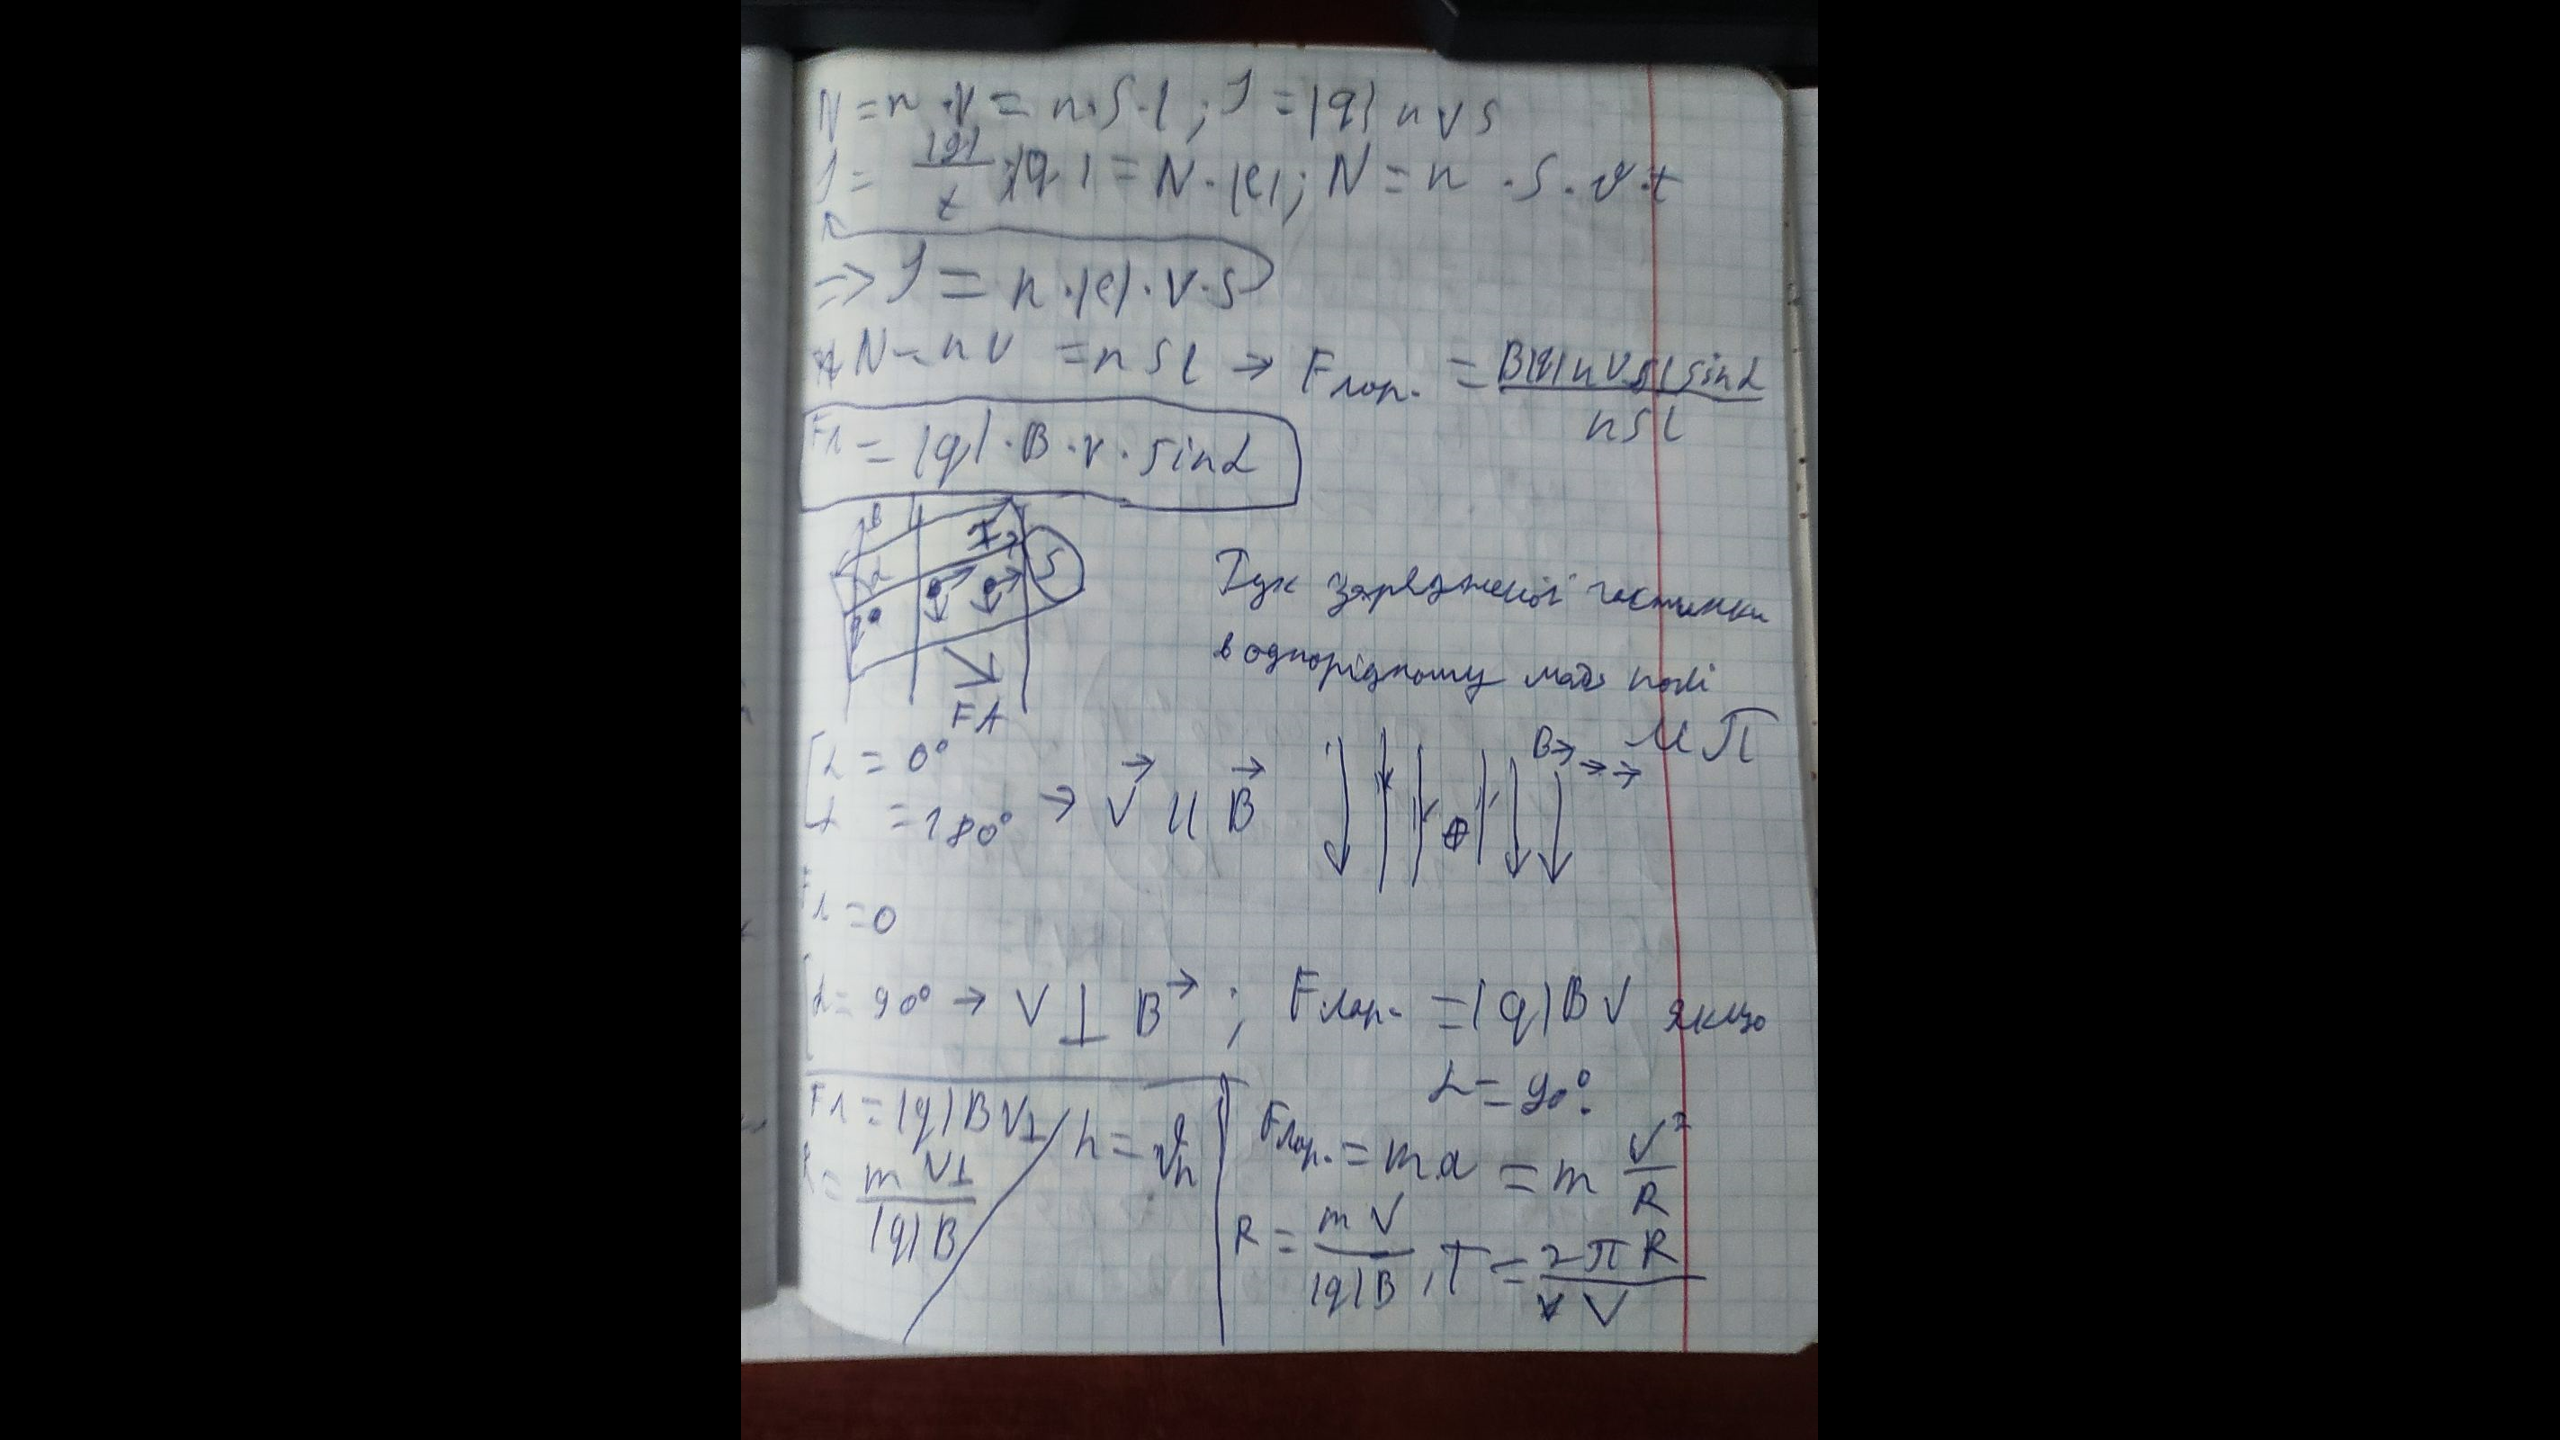 N = n · V = n · S · l ; I = |q| n v S
I = |q|/t ; |q| = N · |e| ; N = n · S · v · t
=> I = n · |e| · v · S
N = n V = n S l → Fлор. = B|q| n v S l sin α / n S l
Fл = |q| · B · v · sin α
B I S
α
q
FA
Рух зарядженої частинки
в однорідному маг. полі
МП
B
α = 0°
= 180° → v⃗ || B⃗
⊕
Fл = 0
α = 90° → V ⊥ B⃗ ; Fлор. = |q| B V якщо
α = 90°.
Fл = |q| B V⊥ / h =
R = m V⊥ / |q| B
Fлор. = m a = m V²/R
R = m V / |q| B , T = 2 π R / V